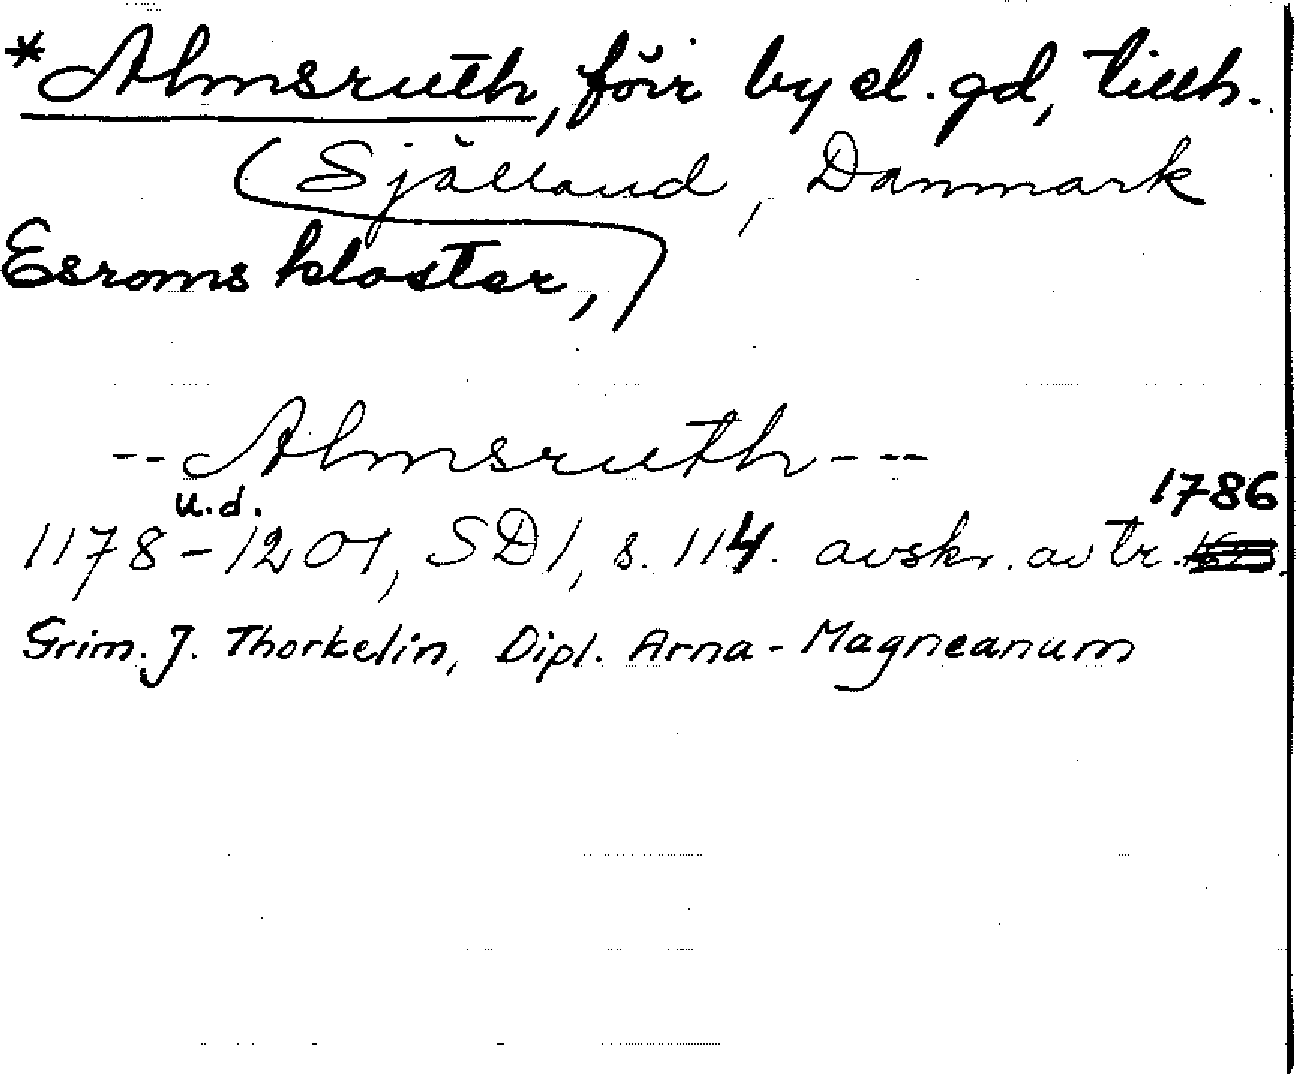 *Almsruth, förr by el. gd, tillh.
(Själland, Danmark
Esroms kloster,)
-- Almsruth ---
u.d. 1786
1178-1201, SD1, s. 114. avskr. av tr.
Grim. J. Thorkelin, Dipl. Arna-Magneanum